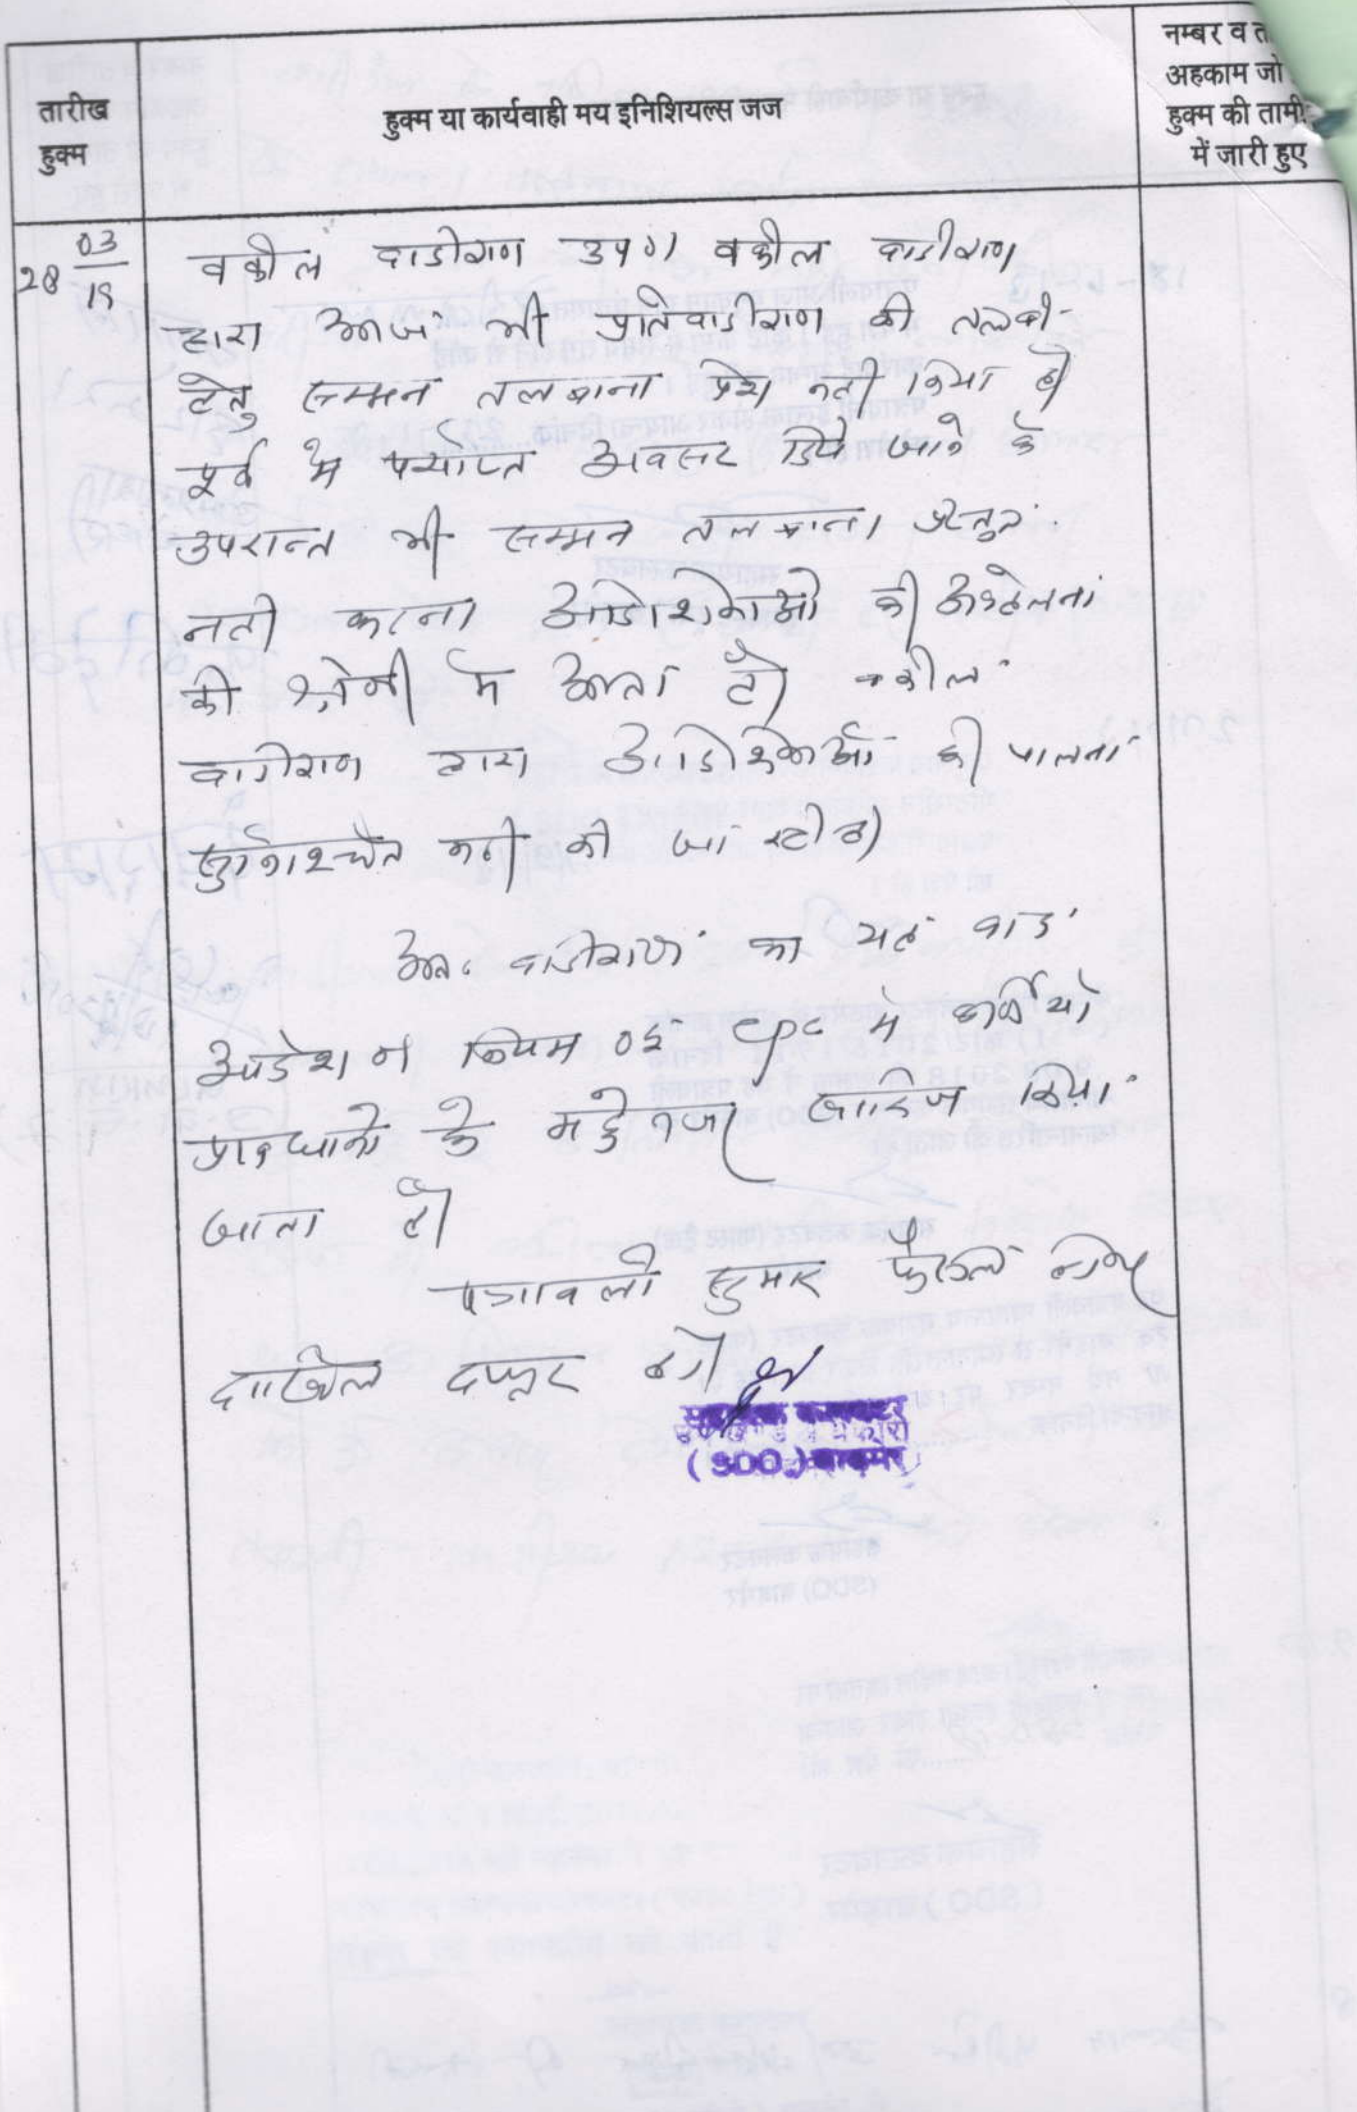 तारीख
हुक्म
हुक्म या कार्यवाही मय इनिशियल्स जज
नम्बर व ता
अहकाम जो
हुक्म की तामी
में जारी हुए
28 03/19
वकील वादीगण उप0। वकील वादीगण
द्वारा आज भी प्रतिवादीगण की तलबी
हेतु सम्मन तलबाना पेश नही किया है।
पूर्व मे पर्याप्त अवसर दिये जाने के
उपरान्त भी सम्मन तलबाना प्रस्तुत
नही करना आदेशिकाओ की अवहेलना
की श्रेणी मे आता है। वकील
वादीगण द्वारा आदेशिकाओं की पालना
सुनिश्चित नही की जा रही है।
अतः वादीगण का यह वाद
आदेश 9 नियम 02 CPC मे वर्णित
प्रावधानो के मद्देनजर खारिज किया
जाता है।
पत्रावली शुमार फैसल होकर
दाखिल दफ्तर हो।
(SDO) बाड़मेर